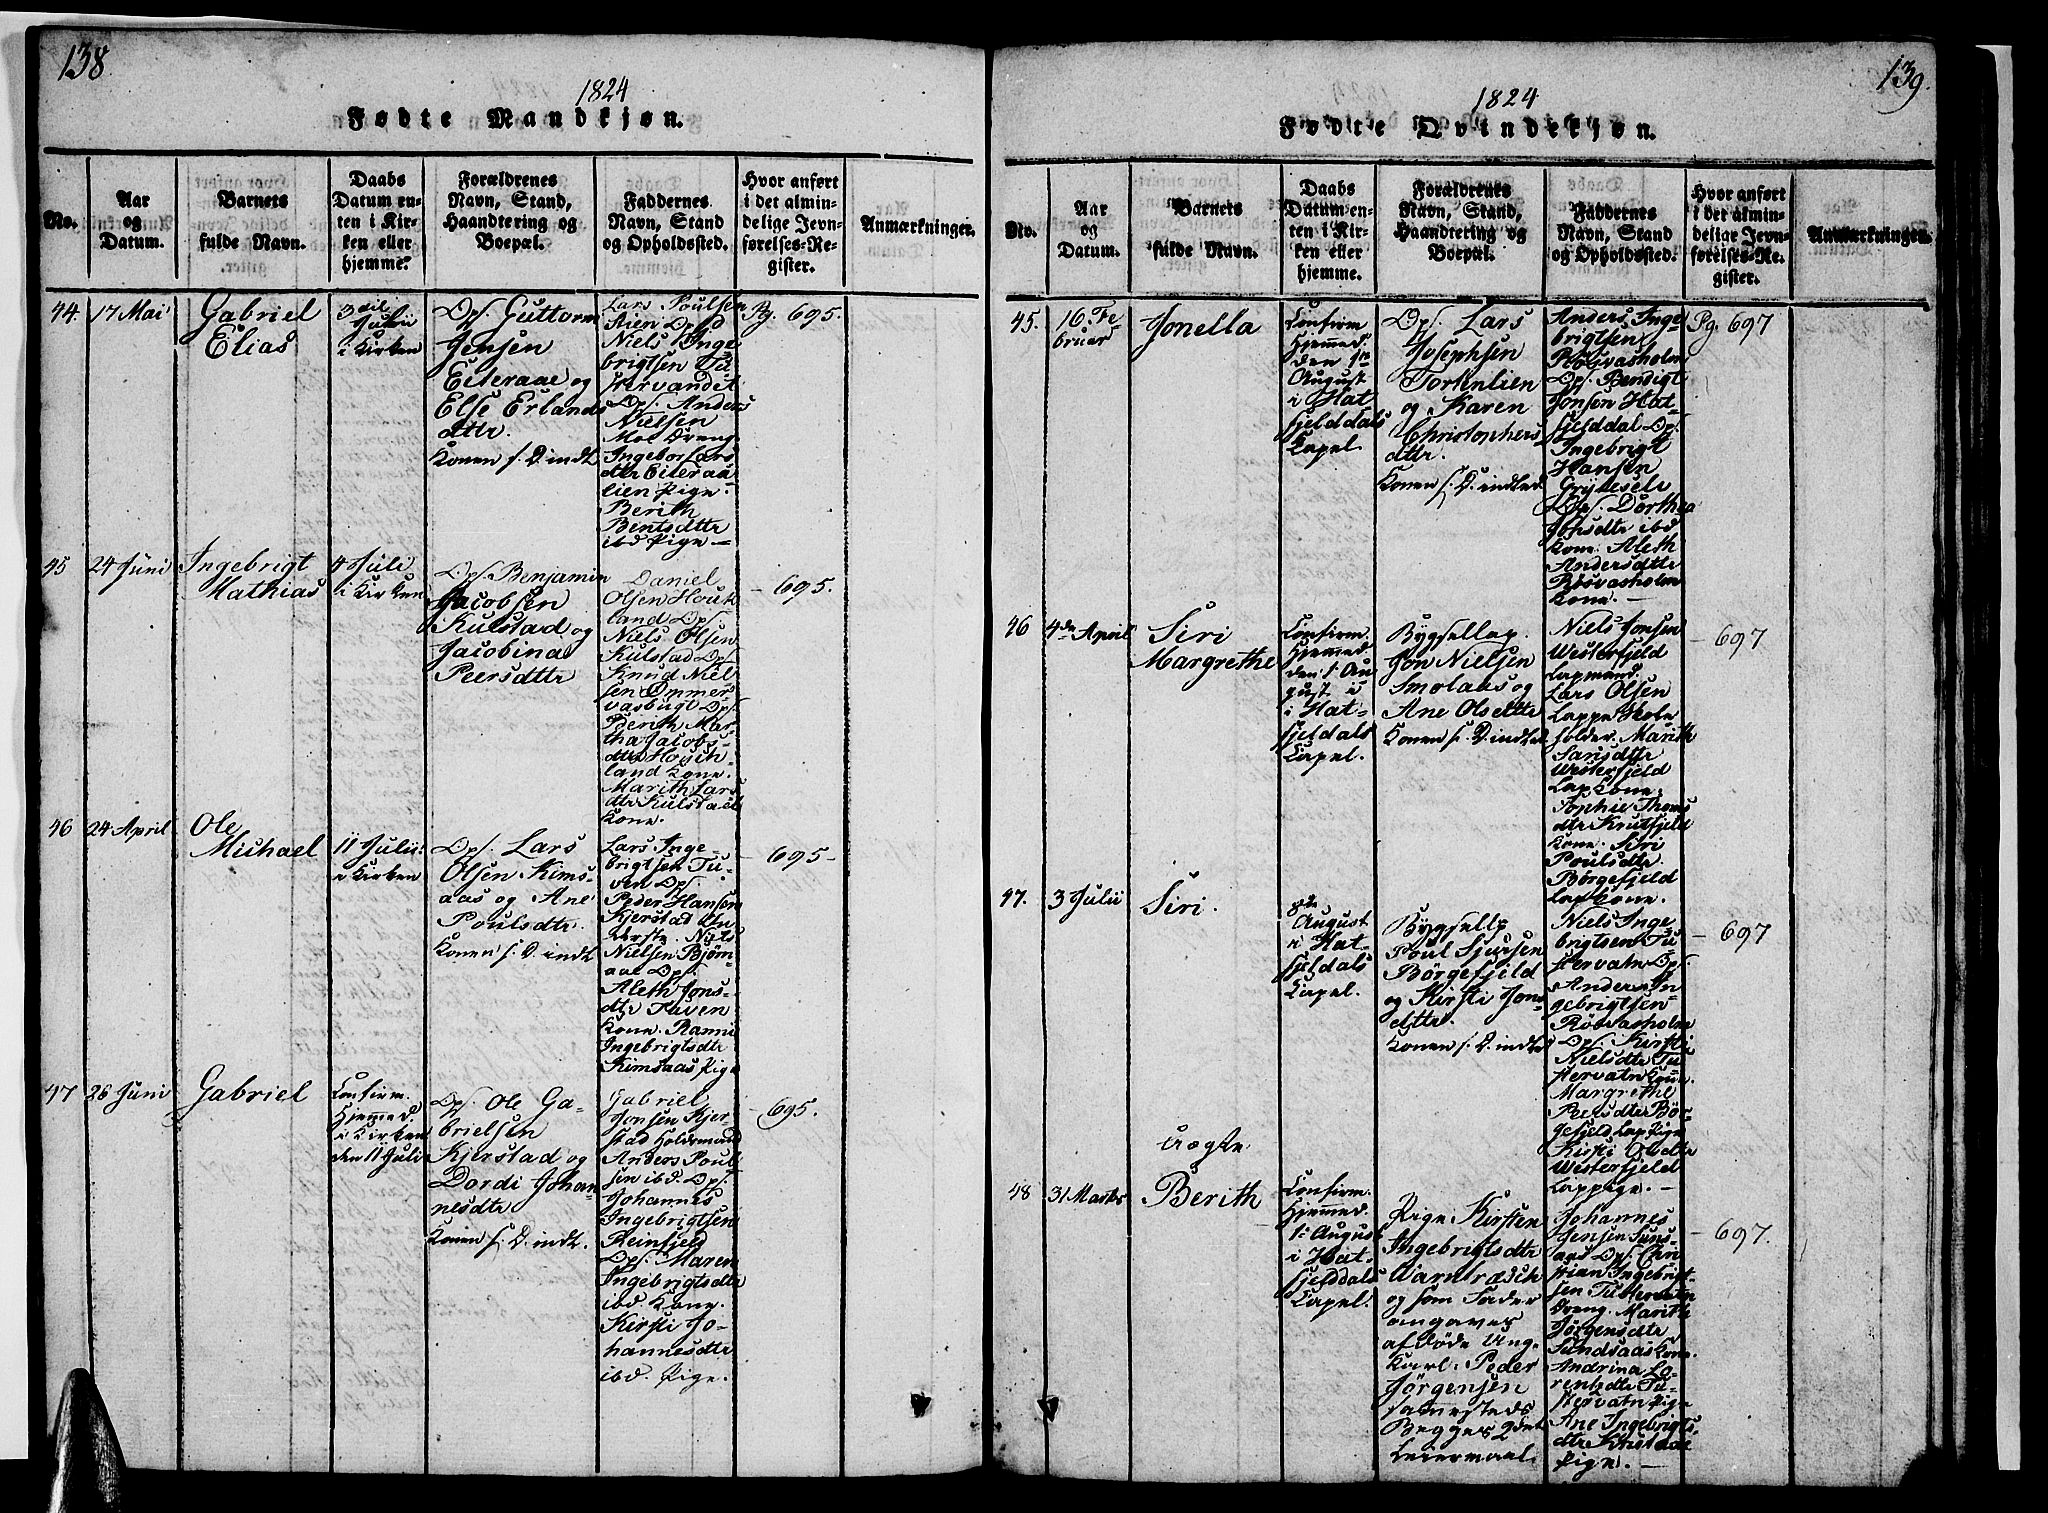 138
1824
Fødte Mandkjøn.
No.
Aar
og
Datum.
Barnets
fulde Navn.
Daabs
Datum en-
ten i Kir-
ken eller
hjemme.
Forældrenes
Navn, Stand,
Haandtering og
Boepæl.
Faddernes
Navn, Stand
og Opholdssted.
Hvor anført
i det almin-
delige Jevn-
førelses-Re-
gister.
Anmærkninger.
44.
17 Mai
Gabriel
Elias
Julii
i Kirken
Dpf. Guttorm
Jensen
Eiteraae og
Else Erlands
dttr.
Konen f. D. indt
Lars Poulsen
Niels Inge
brigtsen
Dpf. Anders
Nielsen
Moe Dreng
Ingebor Lars
dttr Eiteraa
lien Pige.
Berith
Bentsdttr
ibd Pige —
Pg. 695.
45
24 Juni
Ingebrigt
Mathias
4 Juli
i Kirken
Dpf. Benjamin
Jacobsen
Kulstad og
Jacobina
Peersdttr
Daniel
Olsen
land Dpf.
Niels Olsen
Kulstad Dpf.
Knud Niel
sen
Dpf.
Berith Mar-
tha Jacobs-
dttr
land Kone.
Marith Lars
dttr Kulstad
Kone.
— 695.
46
24 April
Ole
Michael
11 Julii
i Kirken
Dpf. Lars
Olsen Kims-
aas og Ane
Poulsdttr.
Konen f. D. indt
Lars Inge-
brigtsen Tu-
ven Dpf.
Peder Hansen
Kjerstad
Niels
Nielsen Bjørn-
aae Dpf.
Aleth Jons-
dttr Tuven
Kone. Rannie
Ingebrigtsdttr
Kimsaas Pige
— 695 —
47
26 Juni
Gabriel
Confirm.
Hjemmed.
i Kirken
den 11 Juli
Dpf. Ole Ga-
brielsen
Kjerstad og
Dordi Johan-
nesdttr
Konen f. D. indt.
Gabriel
Jonsen Kjer-
stad
Anders Poul-
sen ibd. Dpf.
Johannes
Ingebrigtsen
Reinfjeld
Dpf. Maren
Ingebrigtsdttr
ibd. Kone.
Kirsti Jo-
hannesdttr
ibd. Pige.
— 695.
139.
1824
Fødte Qvindekjøn.
No.
Aar
og
Datum.
Barnets
fulde Navn.
Daabs
Datum en-
ten i Kir-
ken eller
hjemme.
Forældrenes
Navn, Stand,
Haandtering og
Boepæl.
Faddernes
Navn, Stand
og Opholdssted.
Hvor anført
i det almin-
delige Jevn-
førelses-Re-
gister.
Anmærkninger.
45.
16 Fe-
bruar
Jonella
Confirm
Hjemmed.
den 1ste
August
i Hat-
fjelddals
Capel.
Dpf. Lars
Josephsen
Tortenlien
og Karen
Christophers
dttr.
Konen f. D. indled
Anders Inge-
brigtsen
Røsvasholm
Dpf. Bendigt
Jonsen Hat-
fjelddal Dpf.
Ingebrigt
Hansen
Grydesele
Dpf. Dorthea
Jonsdttr ibd
Kone. Aleth
Andersdttr
Røsvasholm
Kone. —
Pg. 697
46
4de April
Siri
Margrethe
Confirm.
Hjemmed.
den 1. Au-
gust i
Hat-
fjeldals
Capel.
Bygsellap.
Jon Nielsen
Smolaas og
Ane Olsdttr
Konen f. D. indled
Niels Jonsen
Westerfjeld
Lapmand.
Lars Olsen
Lappe Skole
holder. Marith
Larsdttr
Westerfjeld
Lapkone.
Sophie Thoms
dttr Krutfjeld
Kone. Siri
Poulsdtr
Børgefjeld
Lapkone.
— 697
47.
3 Julii
Siri.
8de
August
i Hat-
fjeldals
Capel.
Bygsellp
Poul Sjursen
Børgefjeld
og Kirsti Jons-
dttr.
Konen f. D. indled
Niels Inge-
brigtsen Tu-
stervatn Dpf.
Anders In-
gebrigtsen
Røsvasholm
Dpf. Kirsti
Nielsdtr Tu-
stervatn Kone.
Margrethe
Peersdtr Bør-
gefjeld Lap Pige
Kirsti Olsdtr
Westerfjeld
Lappige. —
— 697
48
31 Marts
Uægte
Berith
Confirm.
Hjemmed.
1. August
i Hat-
fjelddals
Capel.
Pige Kirsten
Ingebrigtsdtr
Warntræsch
og som Fader
angaves
afdøde Ung-
karl Peder
Jørgensen
sammesteds
Begges 2det
Leiermaal.
Johannes
Jensen Suns-
aas Dpf. Chri
stian Ingebrigt-
sen Tustervatn
Dreng. Marith
Jørgensdtr
Sundsaas Kone.
Andrina Lo-
rentzdtr Tu-
stervatn Pige
Ane Ingebrigts-
dtr
Pige. —
— 697.